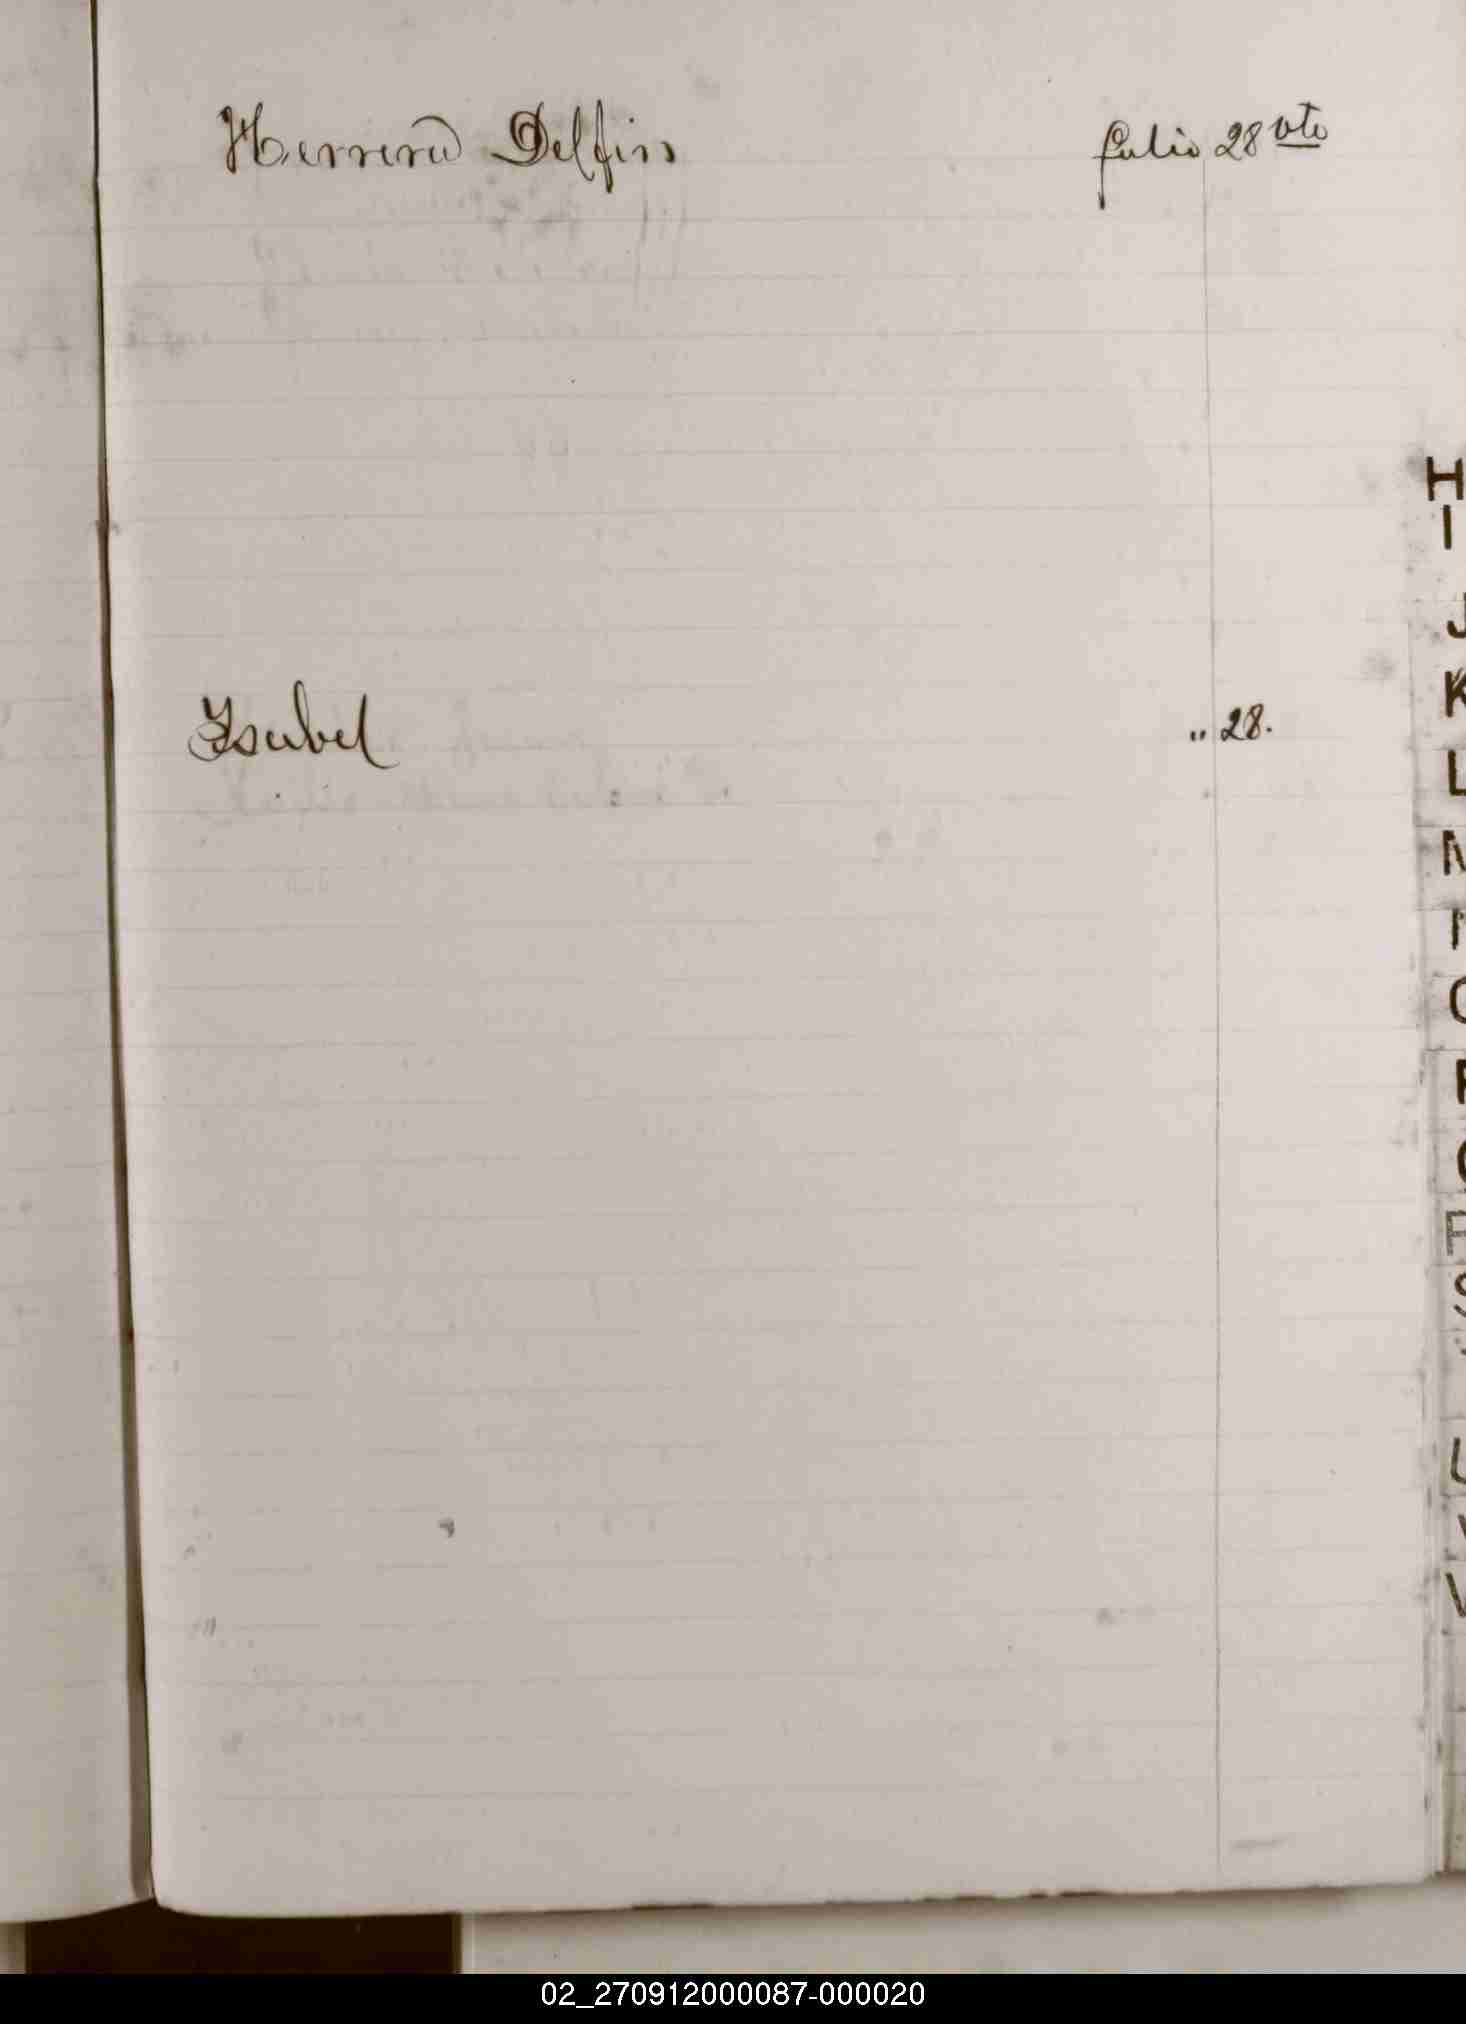 Herrera Delfin Julio 28 vto
Ysabel " 28.
H
I
J
K
L
M
N
O
P
Q
R
S
U
V
02_270912000087-000020